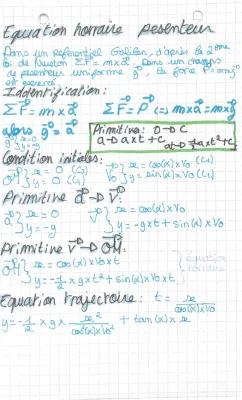 Equation horaire pesenteur
Dans un referentiel Galiléen, d'après la 2ème
loi de Newton ΣF = m x a. Dans un champs
de pesenteur uniforme g, la force P = mg
est exercée
Identification:
ΣF = m x a ΣF = P <=> m x a = m x g
alors g = a
Primitive: 0 → C
a → axt + C at → ½axt² + C
g { x = 0
y = -g
Condition initiales:
O { x = 0 (C3)
y = 0 (C4)
V0 { x = cos(α) x V0 (C1)
y = sin(α) x V0 (C2)
Primitive a → V:
a { x = 0
y = -g
V { x = cos(α) x V0
y = -g x t + sin(α) x V0
Primitive V → OM:
OM { x = cos(α) x V0 x t
y = -½ x g x t² + sin(α) x V0 x t
} équation horaire
Equation trajectoire: t = x / cos(α) x V0
y = -½ x g x x² / cos(α)² x V0² + tan(α) x x